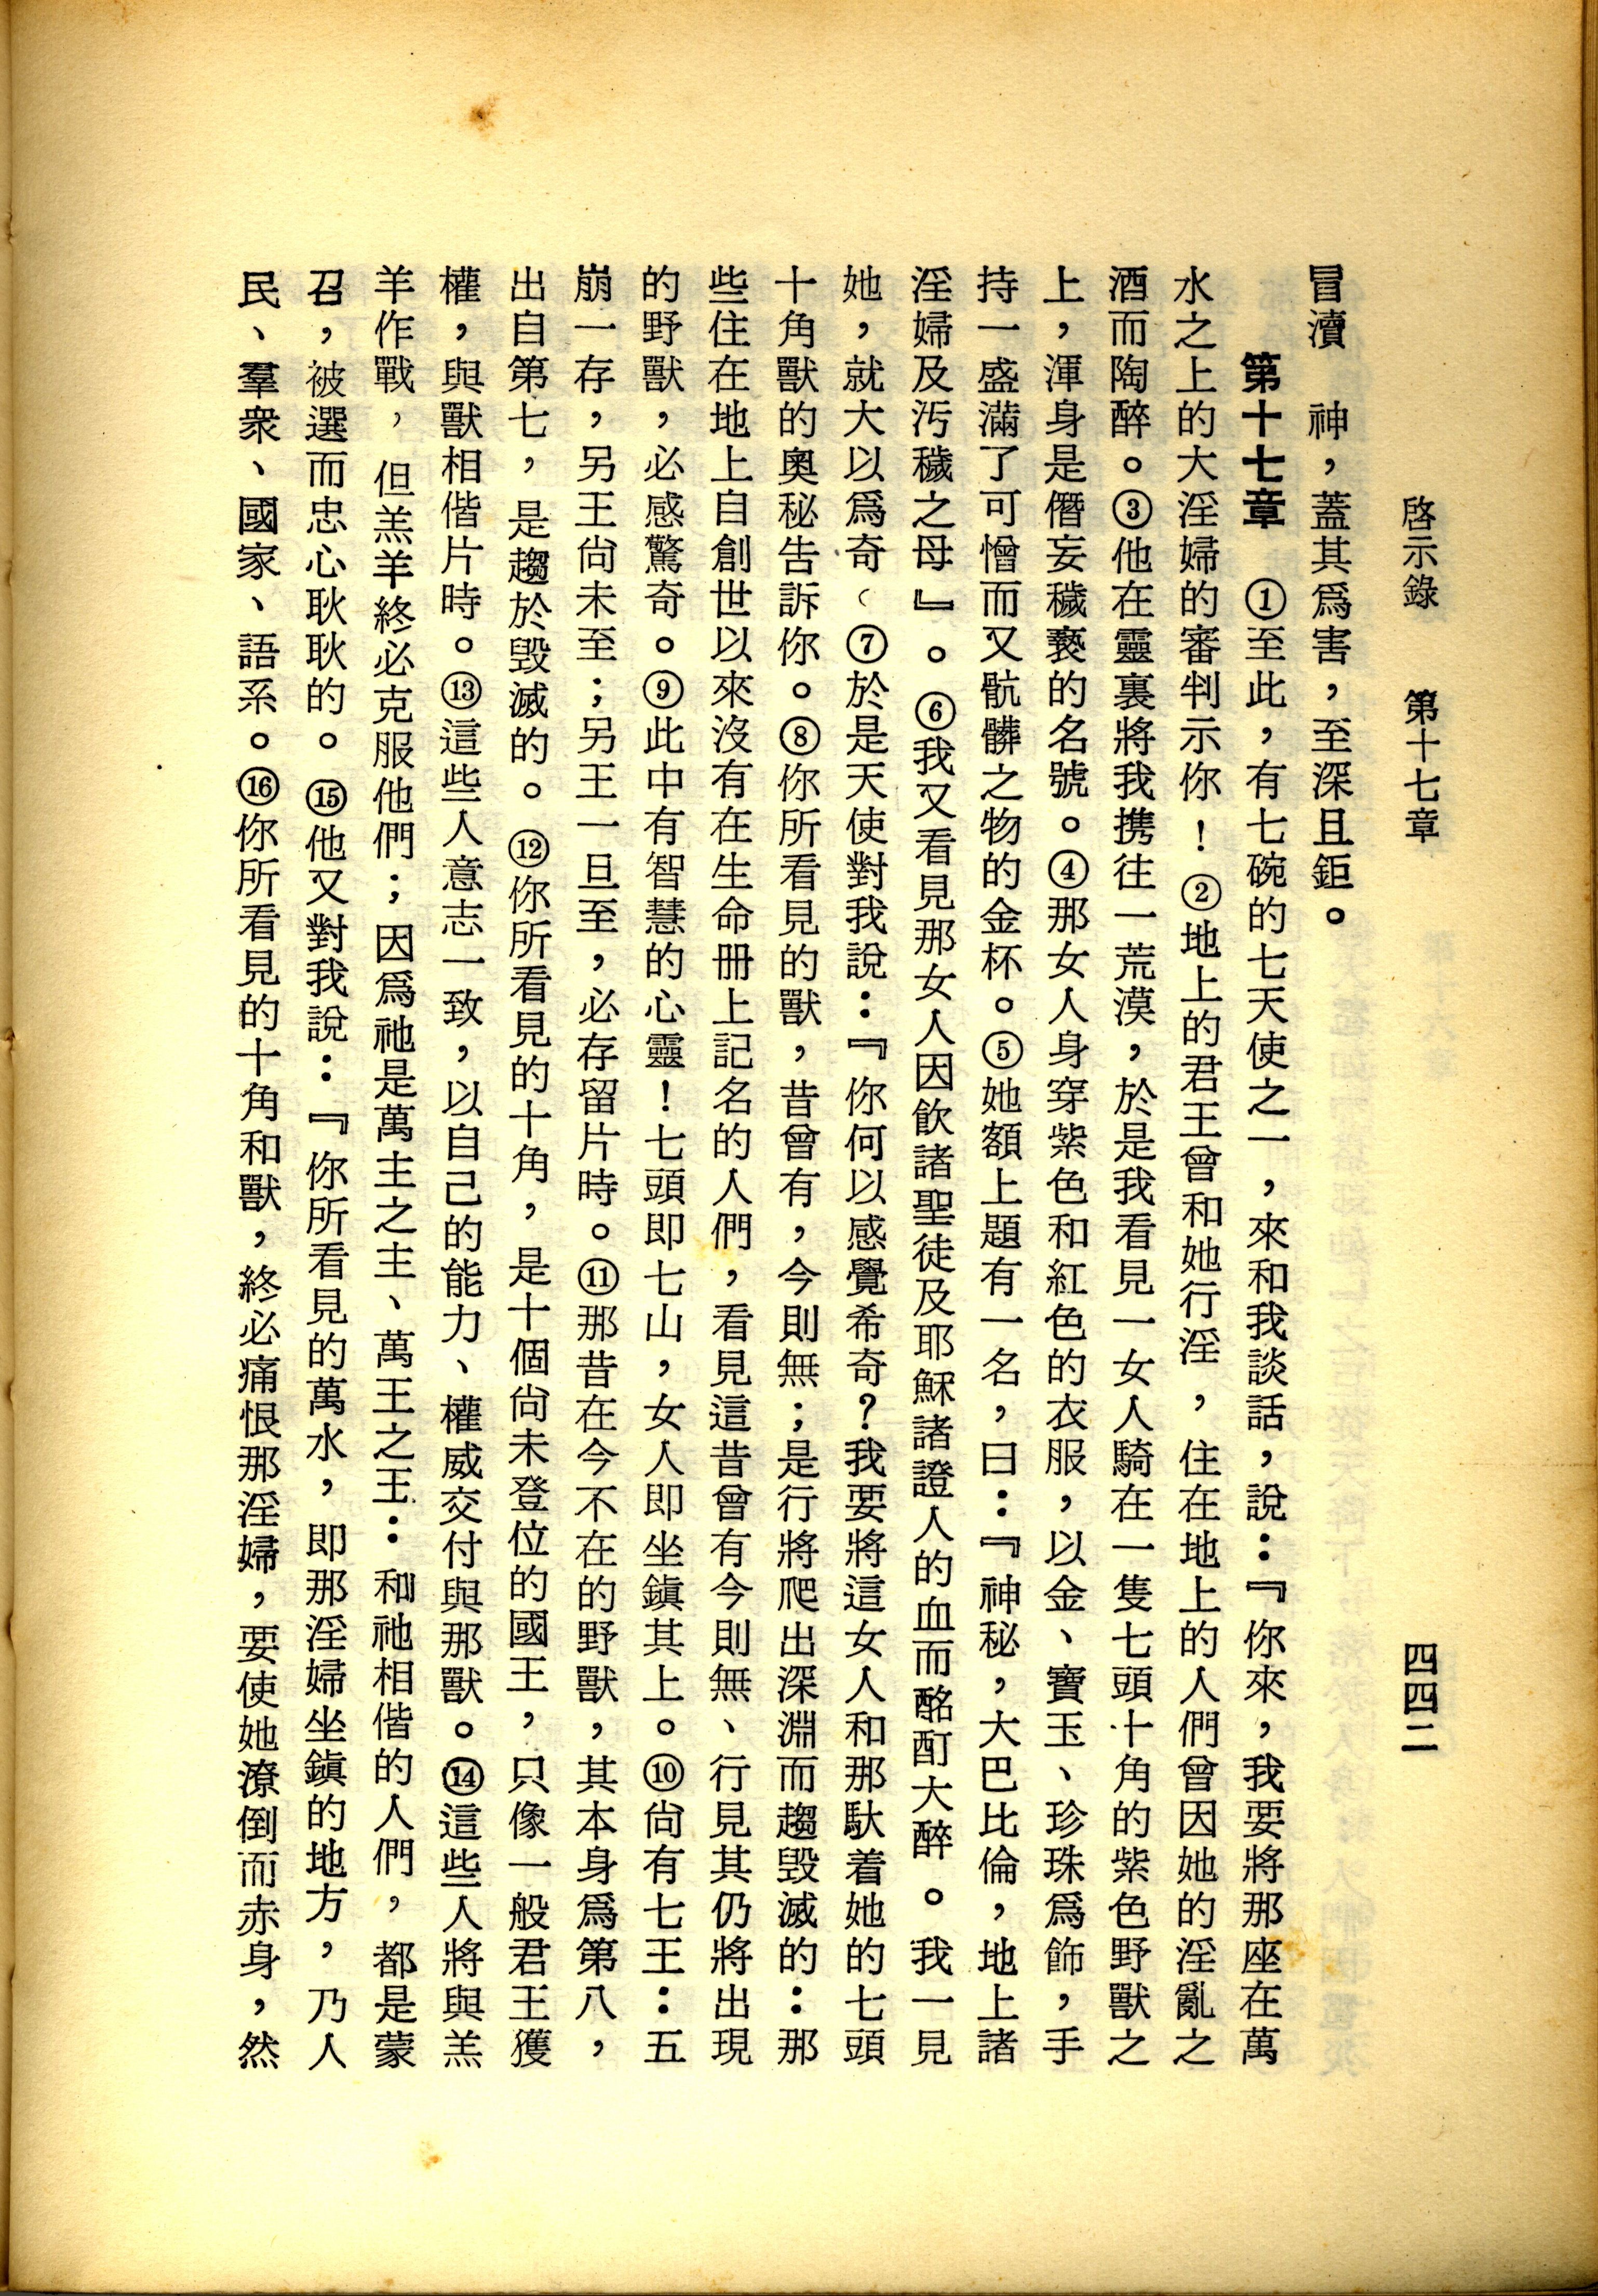 啓示錄　第十七章　四四二
冒瀆　神，蓋其爲害，至深且鉅。
第十七章　①至此，有七碗的七天使之一，來和我談話，說：『你來，我要將那座在萬
水之上的大淫婦的審判示你！②地上的君王曾和她行淫，住在地上的人們曾因她的淫亂之
酒而陶醉。③他在靈裏將我携往一荒漠，於是我看見一女人騎在一隻七頭十角的紫色野獸之
上，渾身是僭妄穢褻的名號。④那女人身穿紫色和紅色的衣服，以金、寶玉、珍珠爲飾，手
持一盛滿了可憎而又骯髒之物的金杯。⑤她額上題有一名，曰：『神秘，大巴比倫，地上諸
淫婦及汚穢之母』。⑥我又看見那女人因飲諸聖徒及耶穌諸證人的血而酩酊大醉。我一見
她，就大以爲奇。⑦於是天使對我說：『你何以感覺希奇？我要將這女人和那馱着她的七頭
十角獸的奧秘告訴你。⑧你所看見的獸，昔曾有，今則無；是行將爬出深淵而趨毀滅的：那
些住在地上自創世以來沒有在生命冊上記名的人們，看見這昔曾有今則無、行見其仍將出現
的野獸，必感驚奇。⑨此中有智慧的心靈！七頭即七山，女人即坐鎭其上。⑩尙有七王：五
崩一存，另王尙未至；另王一旦至，必存留片時。⑪那昔在今不在的野獸，其本身爲第八，
出自第七，是趨於毀滅的。⑫你所看見的十角，是十個尙未登位的國王，只像一般君王獲
權，與獸相偕片時。⑬這些人意志一致，以自己的能力、權威交付與那獸。⑭這些人將與羔
羊作戰，但羔羊終必克服他們；因爲祂是萬主之主、萬王之王：和祂相偕的人們，都是蒙
召，被選而忠心耿耿的。⑮他又對我說：『你所看見的萬水，即那淫婦坐鎭的地方，乃人
民、羣衆、國家、語系。⑯你所看見的十角和獸，終必痛恨那淫婦，要使她潦倒而赤身，然